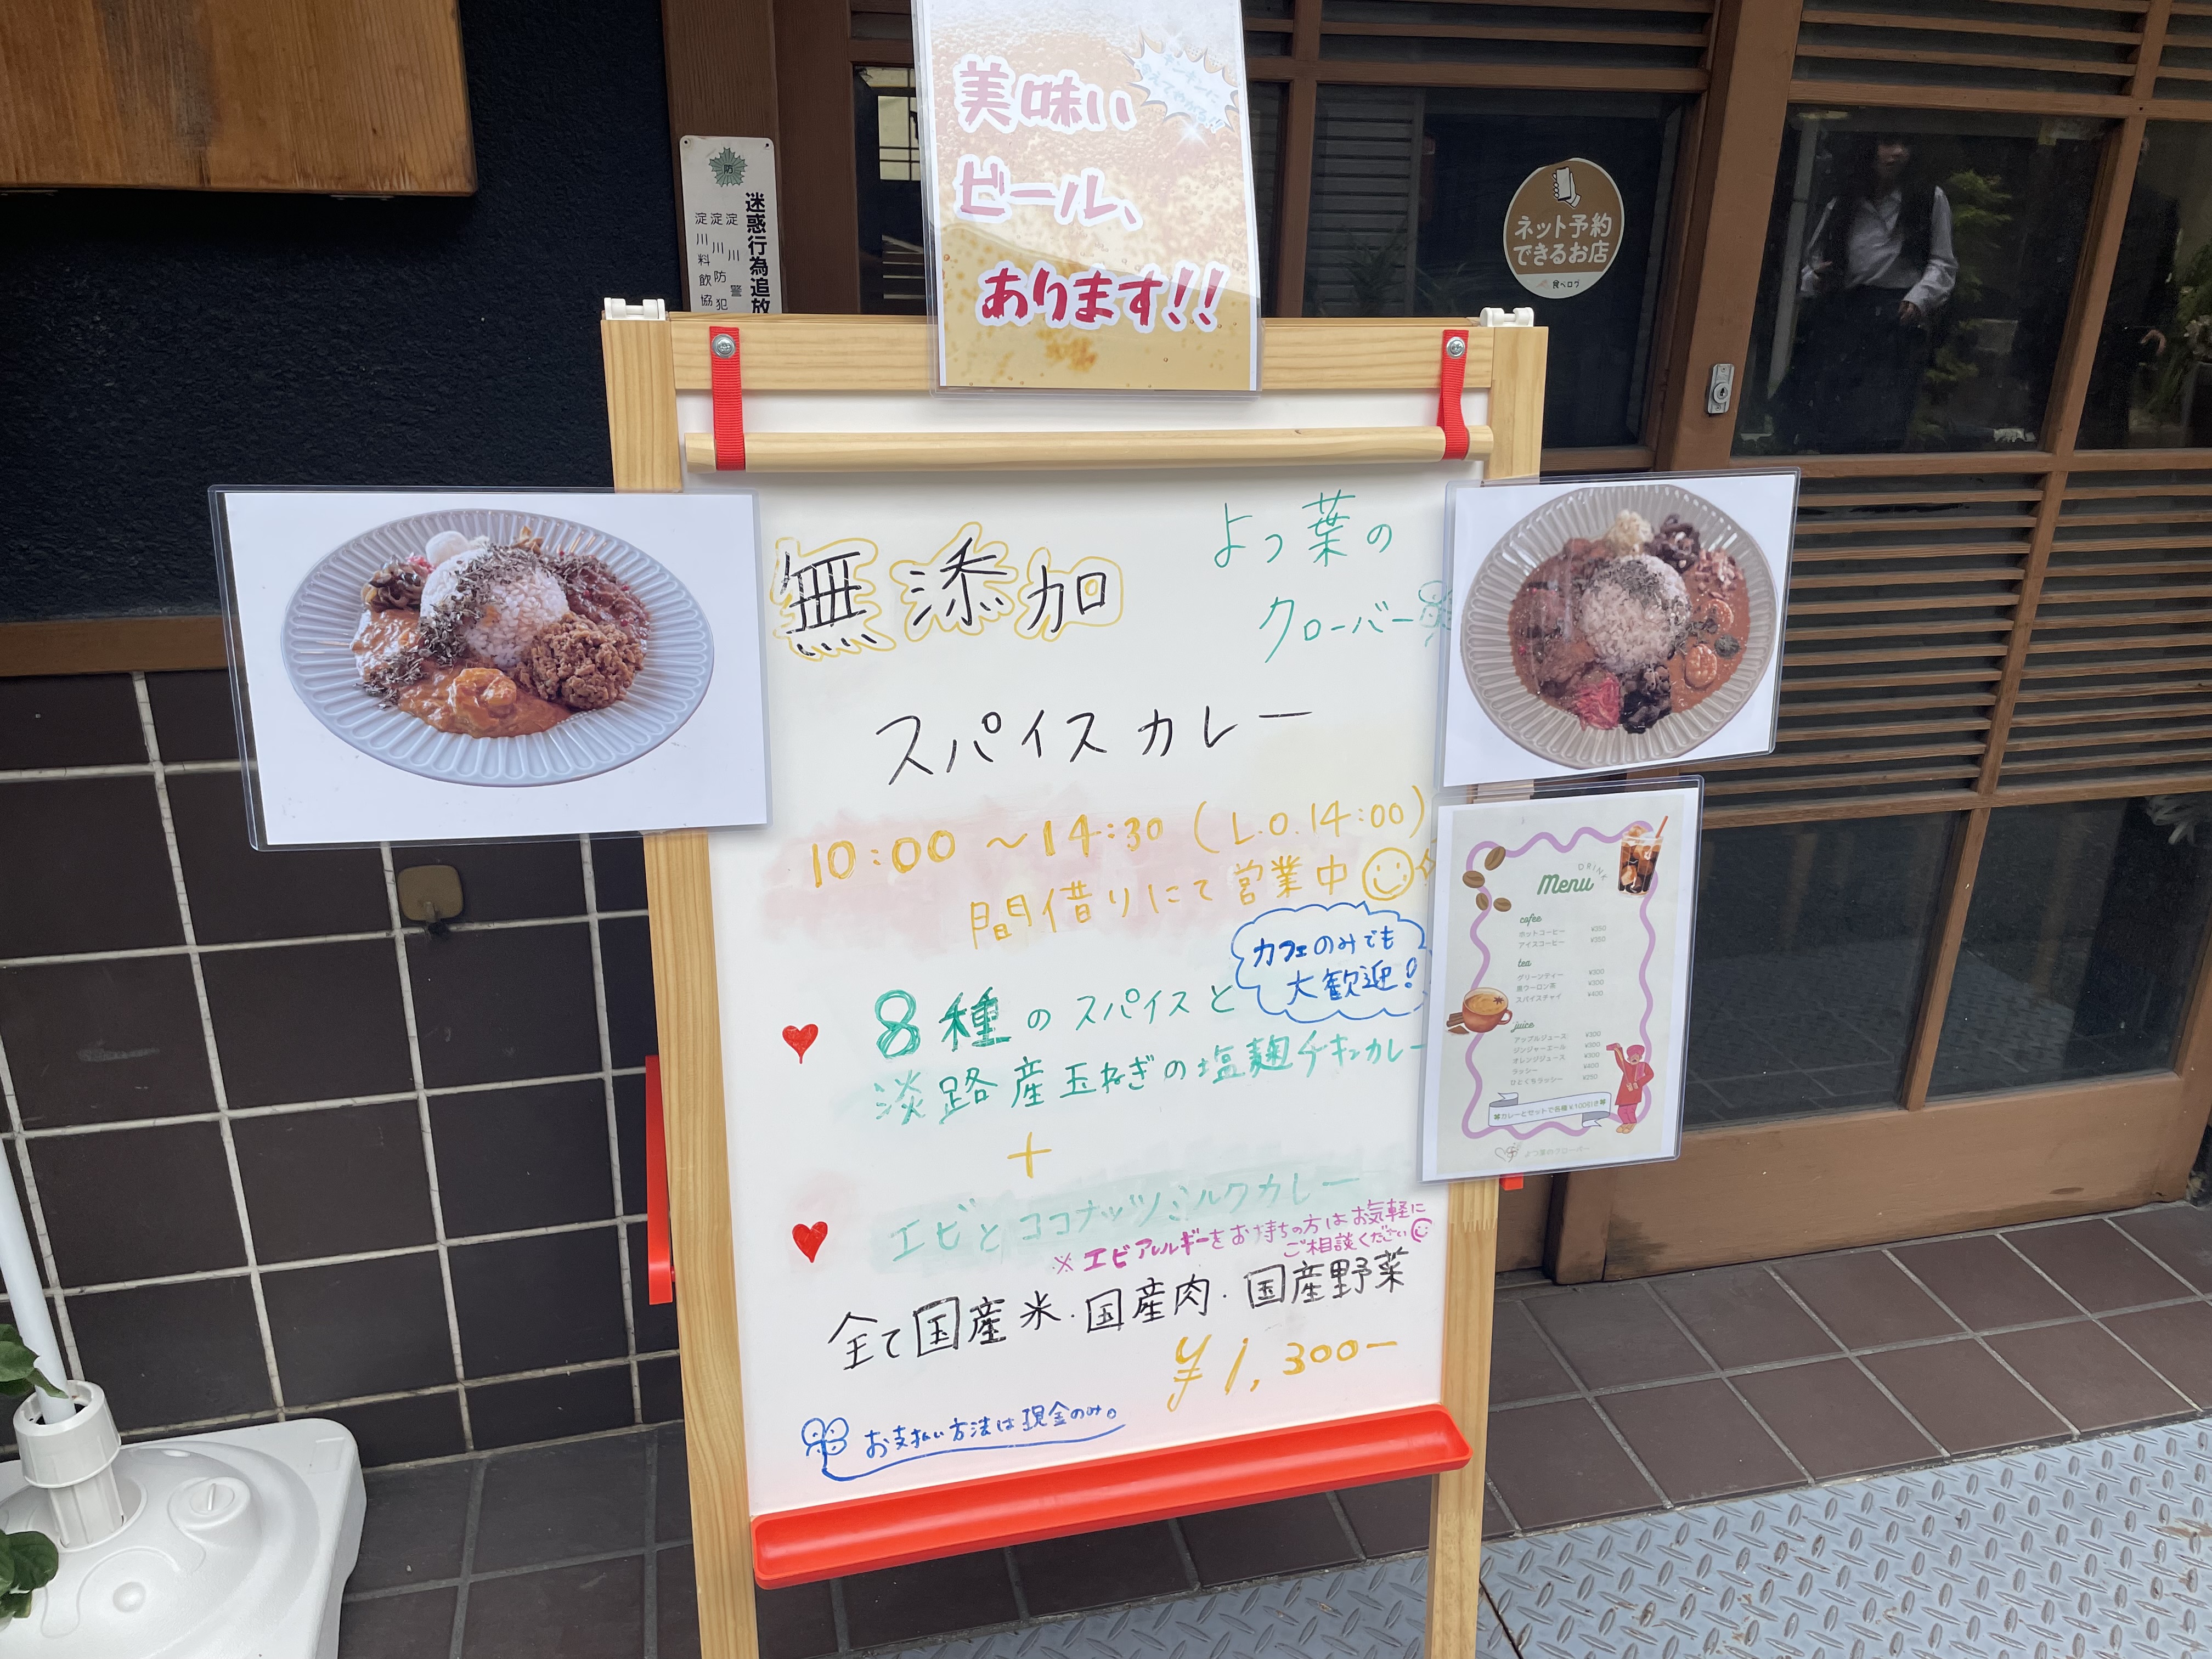 美味い
ビール、
あります!!
防
迷惑行為追放
淀川警
淀川防犯
淀川料飲協
ネット予約
できるお店
食べログ
無添加
よつ葉の
クローバー
スパイスカレー
10:00 ~ 14:30 (L.O.14:00)
間借りにて営業中
カフェのみでも
大歓迎!
8種のスパイスと
淡路産玉ねぎの塩麹チキンカレー
+
エビとココナッツミルクカレー
※エビアレルギーをお持ちの方はお気軽に
ご相談ください
全て国産米・国産肉・国産野菜
¥1,300-
お支払い方法は現金のみ。
DRINK
Menu
cofee
ホットコーヒー ¥350
アイスコーヒー ¥350
tea
グリーンティー ¥300
黒ウーロン茶 ¥300
スパイスチャイ ¥400
juice
アップルジュース ¥300
ジンジャーエール ¥300
オレンジジュース ¥300
ラッシー ¥400
ひとくちラッシー ¥250
カレーとセットで各種¥100引き
よつ葉のクローバー